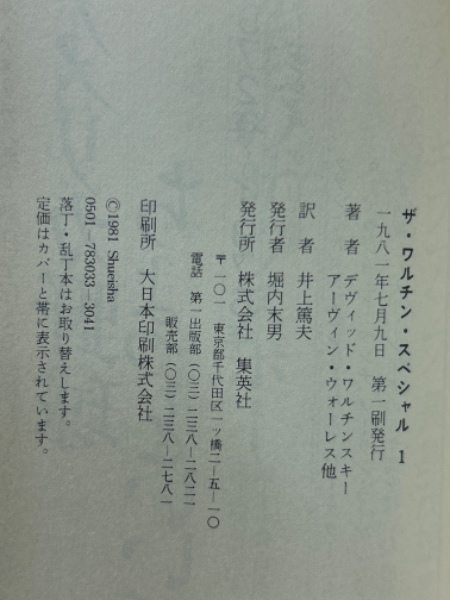 ザ・ワルチン・スペシャル 1
一九八一年七月九日 第一刷発行
著者 デヴィッド・ワルチンスキー
アーヴィン・ウォーレス他
訳者 井上篤夫
発行者 堀内末男
発行所 株式会社 集英社
〒一〇一 東京都千代田区一ッ橋二―五―一〇
電話 第一出版部(〇三)二三八―二八二一
販売部(〇三)二三八―二七八一
印刷所 大日本印刷株式会社
©1981 Shueisha
0501―783033―3041
落丁・乱丁本はお取り替えします。
定価はカバーと帯に表示されています。